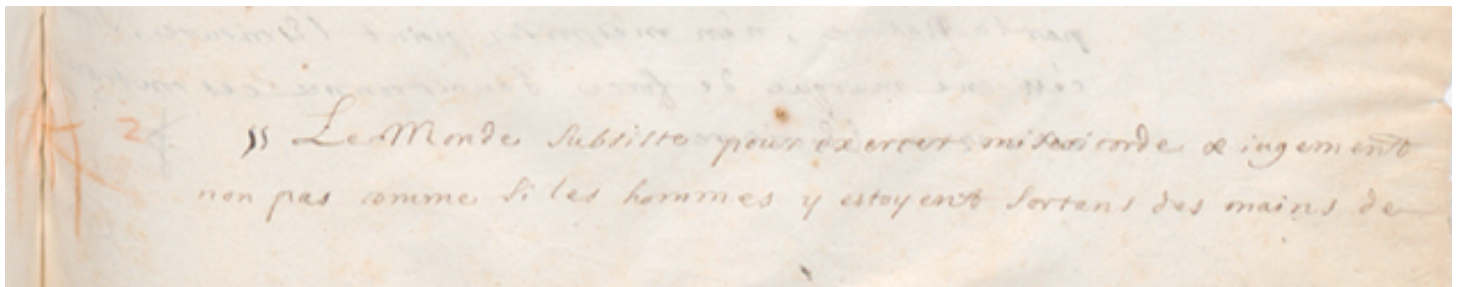 2 " Le Monde subsiste pour exercer misericorde & iugement
non pas comme si les hommes y estoyent sortans des mains de